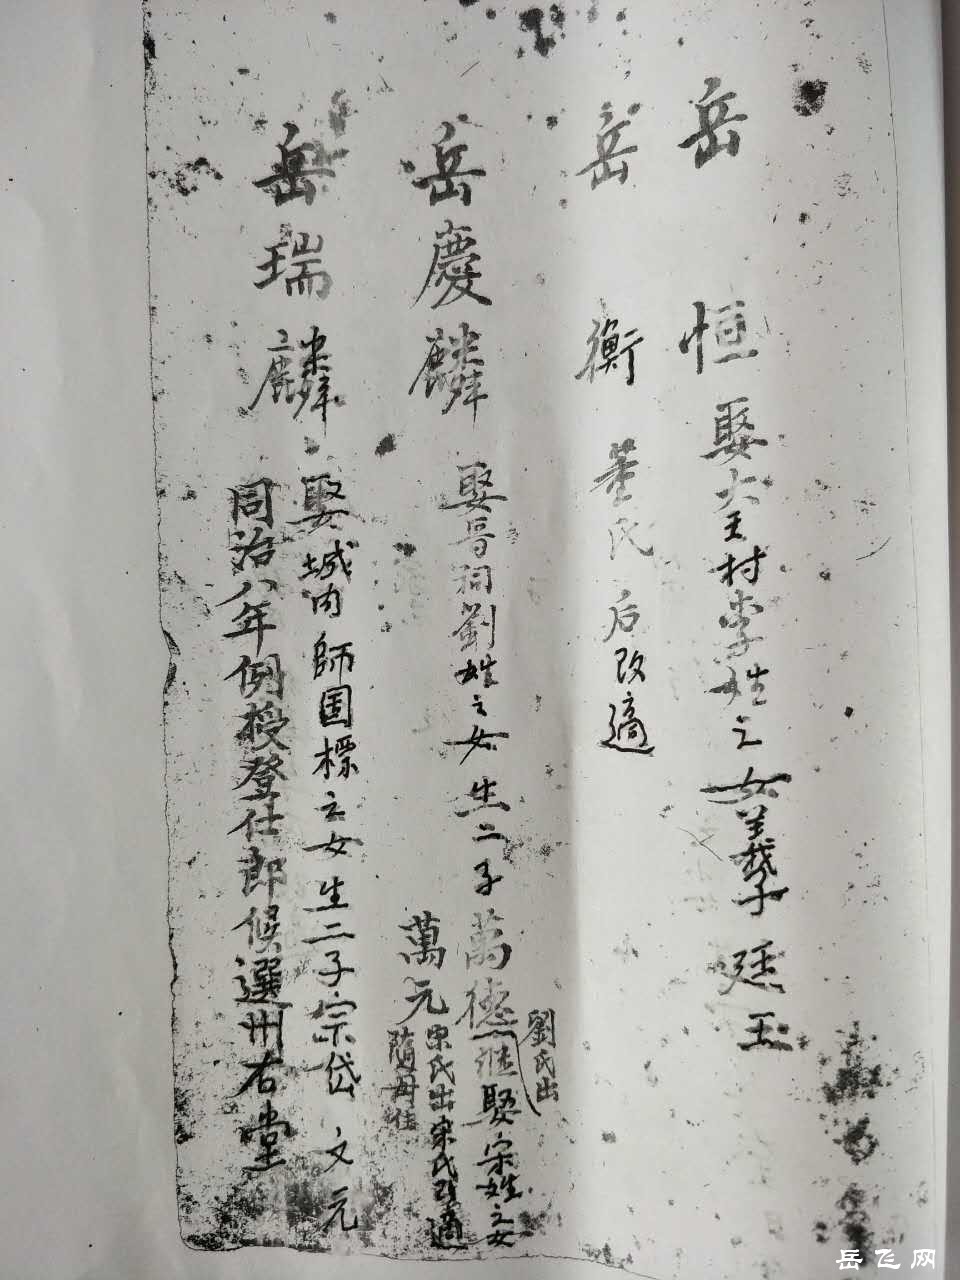 岳 恒 娶大王村李姓之女義子廷玉
岳 衡 董氏后改適
岳慶麟 娶晉祠劉姓之女生二子萬德継娶宋姓之女
劉氏出
萬元宋氏出宋氏改適
隨母住
岳瑞麟 娶城内師国標之女生二子宗岱 文元
同治八年例授登仕郎候選州右堂
岳飞网